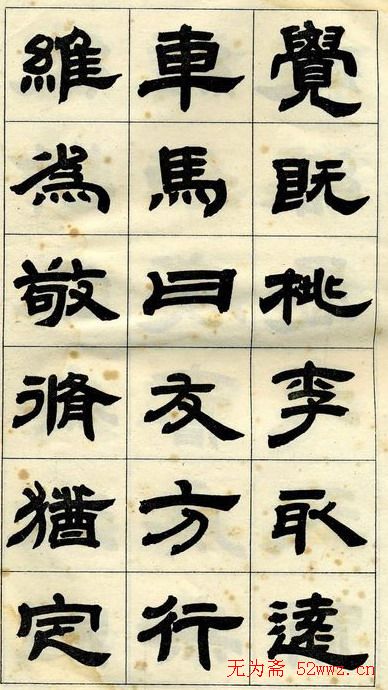 覺既桃李取
車馬曰友方行
維為敬脩猶定
无为斋 52wwz.cn